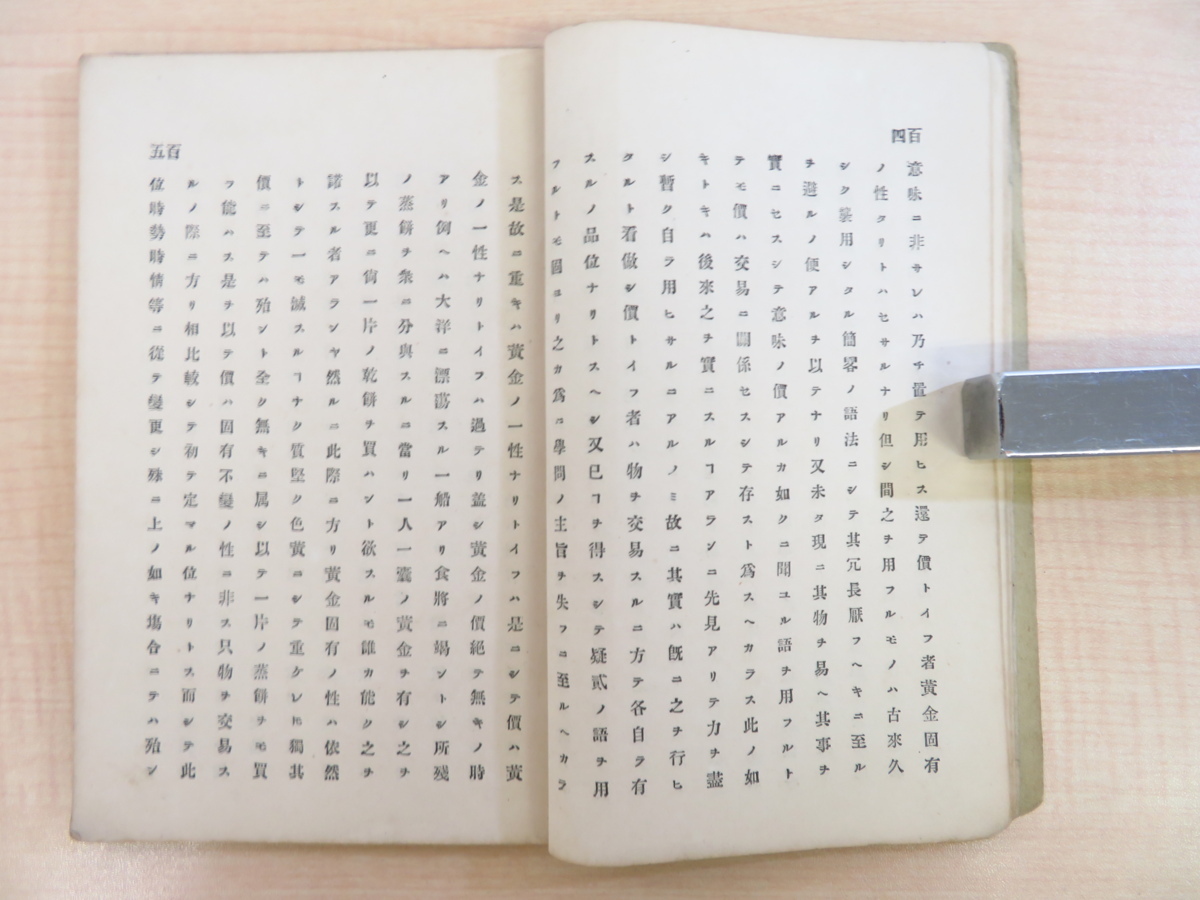 百四
意味ニ非サレハ乃チ置テ用ヒス還テ價トイフ者黃金固有
ノ性クリトハセサルナリ但シ間之チ用フルモノハ古來久
シク襲用シタル簡畧ノ語法ニシテ其冗長厭フヘキニ至ル
チ避ルノ便アルチ以テナリ又未タ現ニ其物チ易ヘ其事チ
實ニセスシテ意味ノ價アルカ如クニ聞ユル語チ用フルト
テモ價ハ交易ニ關係セスシテ存スト爲スヘカラス此ノ如
キトキハ後來之チ實ニスルヿアランニ先見アリテ力チ盡
シ暫ク自ラ用ヒサルニアルノミ故ニ其實ハ旣ニ之チ行ヒ
クルト看做シ價トイフ者ハ物チ交易スルニ方テ各自ラ有
スルノ品位ナリトスヘシ又已ヿチ得スシテ疑貳ノ語チ用
フルトモ固ヨリ之カ爲ニ學問ノ主旨チ失フニ至ルヘカラ
百五
ス是故ニ重キハ黃金ノ一性ナリトイフハ是ニシテ價ハ黃
金ノ一性ナリトイフハ過テリ蓋シ黃金ノ價絕テ無キノ時
アリ例ヘハ大洋ニ漂蕩スル一船アリ食將ニ竭ントシ所殘
ノ蒸餅チ衆ニ分與スルニ當リ一人一囊ノ黃金チ有シ之チ
以テ更ニ尙一片ノ乾餅チ買ハント欲スルモ誰カ能ク之チ
諾スル者アランヤ然ルニ此際ニ方リ黃金固有ノ性ハ依然
トシテ一モ滅スルヿナク質堅ク色黃ニシテ重ケレ𪜈獨其
價ニ至テハ殆ント全ク無キニ属シ以テ一片ノ蒸餅チモ買
フ能ハス是チ以テ價ハ固有不變ノ性ニ非ス只物チ交易ス
ルノ際ニ方リ相比較シテ初テ定マル位ナリトス而シテ此
位時勢時情等ニ從テ變更シ殊ニ上ノ如キ塲合ニテハ殆ン